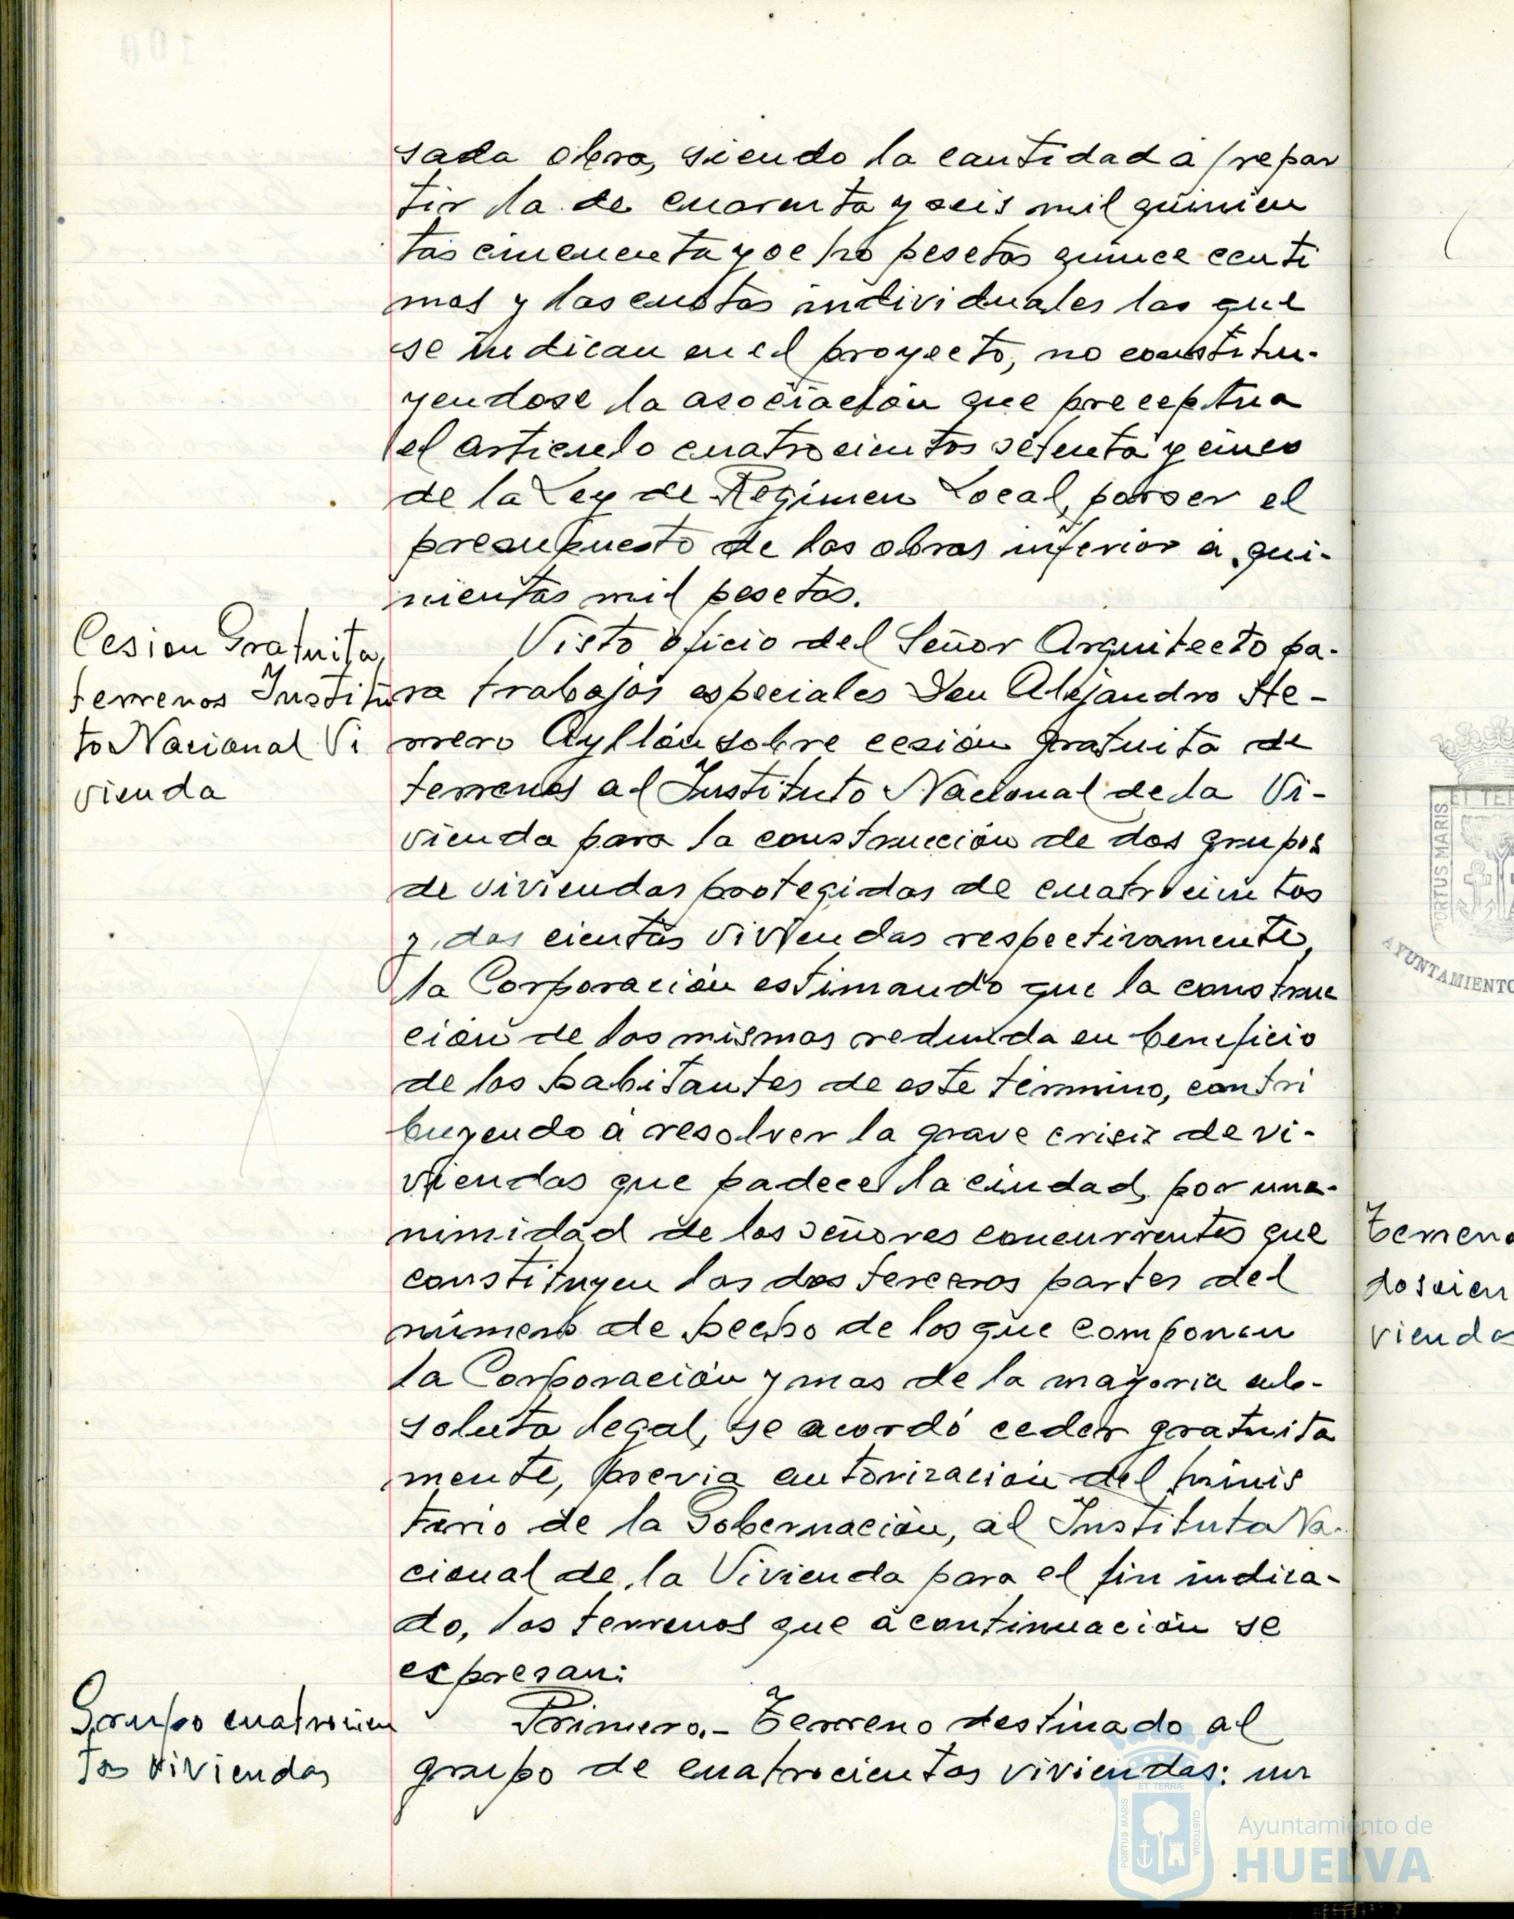 sada obra, siendo la cantidad á repar
tir la de cuarenta y seis mil quinien
tas cincuenta y ocho pesetas quince centi
mos y las cuotas individuales las que
se indican en el proyecto, no constitu-
yendose la asociación que preceptua
el articulo cuatrocientos setenta y cinco
de la Ley de Regimen Local, por ser el
presupuesto de las obras inferior á qui-
nientas mil pesetas.
Cesion Gratuita,
terrenos Institu
to Nacional Vi
vienda
Visto oficio del Señor Arquitecto pa-
ra trabajos especiales Don Alejandro He-
rrero Ayllón sobre cesión gratuita de
terrenos al Instituto Nacional de la Vi-
vienda para la construcción de dos grupos
de viviendas protegidas de cuatrocientas
y dos cientas viviendas respectivamente,
la Corporación estimando que la construc
ción de las mismas redunda en beneficio
de los habitantes de este término, contri
buyendo á resolver la grave crisis de vi-
viendas que padece la ciudad, por una-
nimidad de los señores concurrentes que
constituyen las dos terceras partes del
número de hecho de los que componen
la Corporación y mas de la mayoria ab-
soluta legal, se acordó ceder gratuita
mente, previa autorización del Minis
terio de la Gobernación, al Instituto Na-
cional de la Vivienda para el fin indica-
do, los terrenos que á continuación se
expresan:
Grupo cuatrocien
tas viviendas
Primero.- Terreno destinado al
grupo de cuatrocientas viviendas: un
Terreno
doscien
vienda
ET TER
PORTUS MARIS
AYUNTAMIENTO
ET TERRÆ
PORTUS MARIS
CUSTODIA
Ayuntamiento de
HUELVA